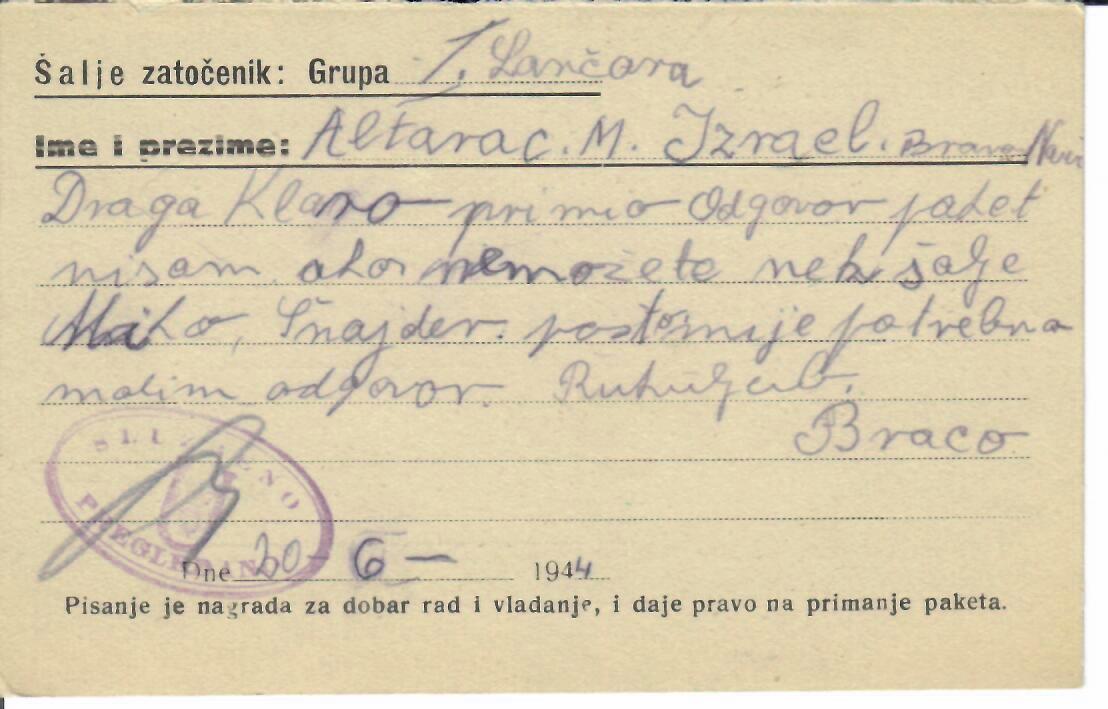 Šalje zatočenik: Grupa I. Lančara
Ime i prezime: Altarac. M. Izrael.
Draga Klaro primio odgovor paket
nisam ako nemožete nek šalje
Miko, Šnajder. potrebna
molim odgovor. Rukuljub.
Braco
SLUŽBENO
PREGLEDANO
Dne 20 - 6 - 1944
Pisanje je nagrada za dobar rad i vladanje, i daje pravo na primanje paketa.